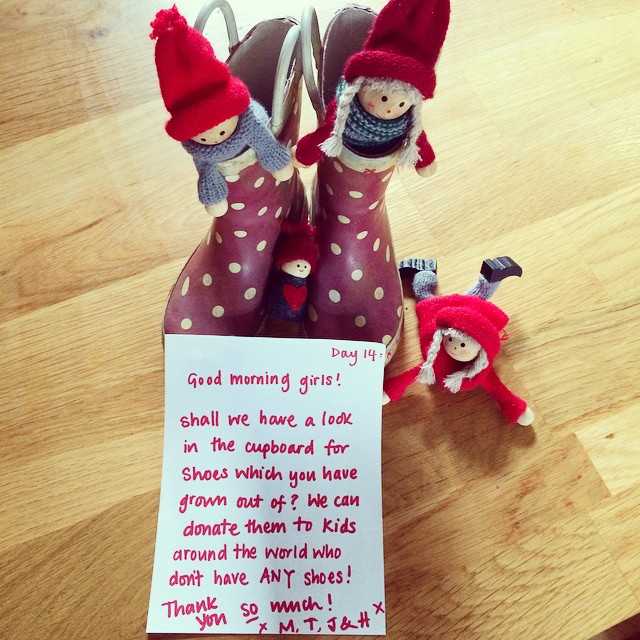 Day 14:
Good morning girls!
shall we have a look
in the cupboard for
shoes which you have
grown out of? We can
donate them to kids
around the world who
don't have ANY shoes!
Thank you so much!
x M, T, J & H x